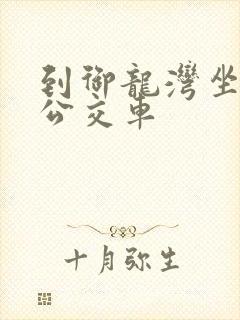 到御龍灣坐
公交車
十月弥生